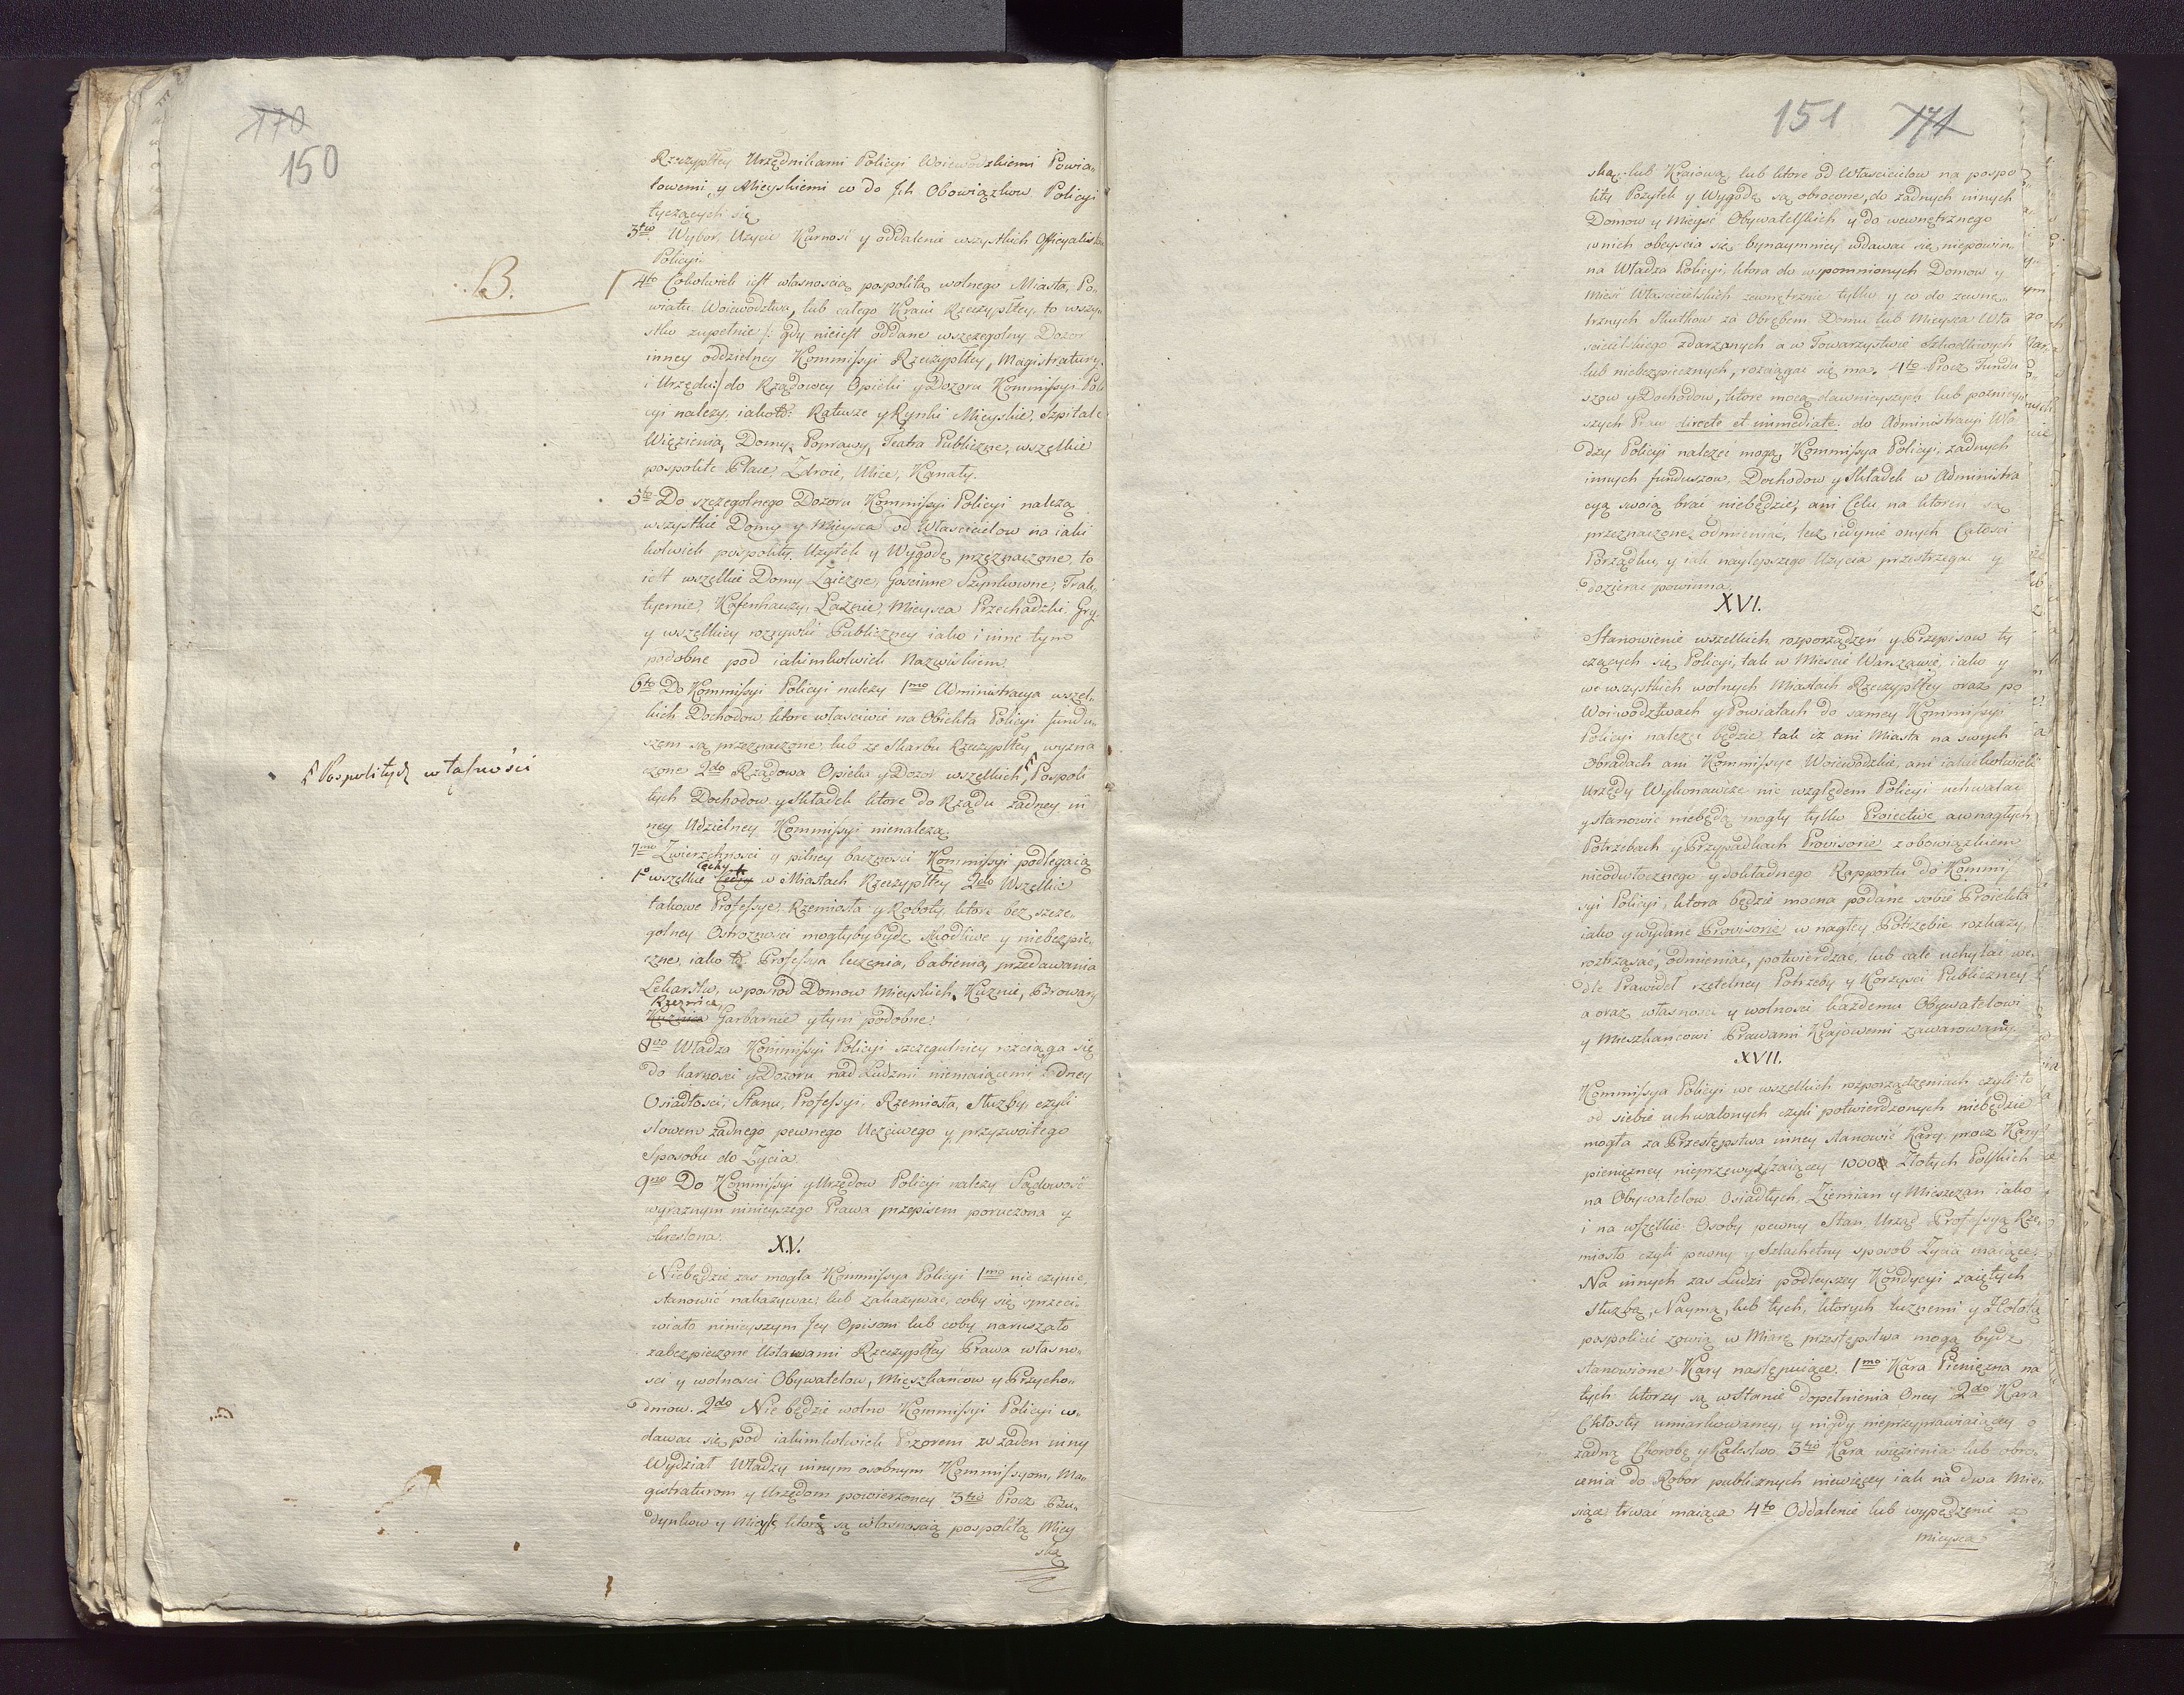 170
150
B.
Pospolitych własności
Rzeczypltey Urzędnikami Policyi Woiewodzkiemi Powia„
towemi y Mieyskiemi co do Jch Obowiązkow Policyi
tyczących się
3tio Wybor, Użycie Karność y oddalenie wszystkich Officyalistow
Policyi.
4to Cokolwiek iest własnoscią pospolitą wolnego Miasta, Po„
wiatu, Woiewodztwa, lub całego Kraiu Rzeczypltey, to wszy„
stko zupełnie /: gdy nieiest oddane wszczegolny Dozor
inney oddzielney Kommissyi Rzeczypltey, Magistratury
i Urzędu:/ do Rządowey Opieki y Dozoru Kommissyi Poli
cyi nalezy, iako to: Ratusze y Rynki Mieyskie, Szpitale
Więzienia, Domy Poprawy, Teatra Publiczne, wszelkie
pospolite Place, Zdroie, Ulice, Kanały.
5to Do szczegolnego Dozoru Kommissyi Policyi nalezą
wszystkie Domy y Mieysca od Właścicielow na iaki
kolwiek pospolity Użytek y Wygodę przeznaczone, to
iest wszelkie Domy Zaiezne, Goscinne Szynkowne, Trak„
tyernie, Kafenhauzy, Łaznie, Mieysca Przechadzki, Gry
y wszelkiey rozrywki Publiczney iako i inne tym
podobne pod iakimkolwiek Nazwiskiem.
6to Do Kommissyi Policyi nalezy 1mo Administracya wszel„
kich Dochodow, ktore własciwie na Obiekta Policyi fundu„
szem są przeznaczone, lub ze Skarbu Rzeczypltey wyzna
czone 2do Rządowa Opieka y Dozor wszelkich Pospoli
tych Dochodow y Składek ktore do Rządu zadney in
ney Udzielney Kommissyi nienalezą.
7mo Zwierzchnosci y pilney bacznosci Kommissyi podlegaią
Cechy
1o wszelkie w Miastach Rzeczypltey 2do Wszelkie
takowe Professye, Rzemiosła y Roboty, ktore bez szcze„
golney Ostroznosci mogłyby bydz szkodliwe y niebezpie„
czne, iako to: Professya leczenia, babienia, przedawania
Lekarstw, wposrod Domow Mieyskich, Kuznie, Browary
Rzeznice
Kuznice Garbarnie y tym podobne.
8vo Władza Kommissyi Policyi szczegulniey rozciąga się
do karnosci y Dozoru nad Ludzmi niemaiącemi zadney
Osiadłosci, Stanu, Professyi, Rzemiosła, Służby, czyli
słowem zadnego pewnego Uczciwego y przyzwoitego
Sposobu do Życia.
9no Do Kommissyi y Urzędow Policyi nalezy Sądowość
wyraznym ninieyszego Prawa przepisem poruczona y
okreslona.
XV.
Niebędzie zas mogła Kommissya Policyi 1mo nic czynić,
stanowić nakazywać, lub zakazywać, coby się sprzeci„
wiało ninieyszym Jey Opisom lub coby naruszało
zabezpieczone Ustawami Rzeczypltey Prawa własno„
sci y wolnosci Obywatelow, Mieszkańcow y Przycho„
dniow. 2do Nie będzie wolno Kommissyi Policyi w„
dawać się pod iakimkolwiek Pozorem w zaden inny
Wydział Władzy innym osobnym Kommissyom, Ma„
gistraturom y Urzędom powierzoney 3tio Procz Bu„
dynkow y Mieysc ktore są własnoscią pospolitą Miey
ską
151 171
ską, lub Kraiową, lub ktore od Własciciełow na pospo
lity Pozytek y Wygodę są obrocone, do zadnych innych
Domow y Mieysc Obywatelskich y do wewnętrznego
wnich obeyscia się bynaymniey wdawać się niepowin„
na Władza Policyi, ktora do wspomnionych Domow y
Mieść Własicielskich zewnętrznie tylko y co do zewnę„
trznych Skutkow za Obrębem Domu lub Mieysca Wła
scicielskiego zdarzonych a w Towarzystwie Szkodliwych
lub niebezpiecznych, rozciągać się ma. 4to Procz Fundu
szow y Dochodow, ktore mocą dawnieyszych lub poznieysz
szych Praw directe et immediate do Administracyi Wła
dzy Policyi nalezeć mogą, Kommissya Policyi, zadnych
innych funduszow, Dochodow y Składek w Administra
cyą swoią brać niebędzie, ani Celu na ktoren są
przeznaczone, odmieniać, lecz iedynie onych Całosci
Porządku, y iak naylepszego Użycia przestrzegać y
dozierać powinna.
XVI.
Stanowienie wszelkich rozporządzeń y Przepisow ty
czących się Policyi, tak w Miescie Warszawie, iako y
we wszystkich wolnych Miastach Rzeczypltey oraz po
Woiewodztwach y Powiatach do samey Kommissyi
Policyi nalezeć będzie, tak iz ani Miasta na swych
Obradach ani Kommissye Woiewodzkie, ani iakiekolwiek
Urzędy Wykonawcze nic względem Policyi uchwalać
y stanowić niebędą mogły tylko Proiective a w nagłych
Potrzebach y Przypadkach Provisorie z obowiązkiem
nieodwłocznego y dokładnego Rapportu do Kommis
syi Policyi, ktora będzie mocna podane sobie Proiekta
iako y wydane Provisorie w nagłey Potrzebie rozkazy,
roztrząsać, odmieniać, potwierdzać, lub całe uchylać we„
dle Prawideł rzetelney Potrzeby y Korzysci Publiczney
a oraz własnosci y wolnosci każdemu Obywatelowi
y Mieszkancowi Prawami Krajowemi zawarowaney.
XVII.
Kommissya Policyi we wszelkich rozporządzeniach czyli to
od siebie uchwalonych czyli potwierdzonych niebędzie
mogła za Przestępstwa inney stanowić Kary, procz Kary
pieniężney nieprzewyższaiącey 1000 Złotych Polskich
na Obywatelow Osiadłych, Ziemian y Mieszczan iako
i na wszelkie Osoby pewny Stan, Urząd, Professyą Rze„
miosło czyli pewny y Szlachetny sposob Życia maiące;
Na innych zas Ludzi podleyszey Kondycyi zaiętych
Służbą, Naymą, lub tych, ktorych luznemi y Hołotą
pospolicie zowią w Miarę przestępstwa mogą bydz
stanowione Kary następuiące. 1mo Kara Pieniężna na
tych ktorzy są wStanie dopełnienia Oney 2do Kara
Chłosty umiarkowaney, y nigdy nieprzyprawiaiącey o
zadną Chorobę y Kalectwo 3tio Kara więzienia lub obro„
cenia do Robot publicznych niewięcey iak na dwa Mie„
siące trwać maiąca 4to Oddalenie lub wypędzenie z
Mieysca